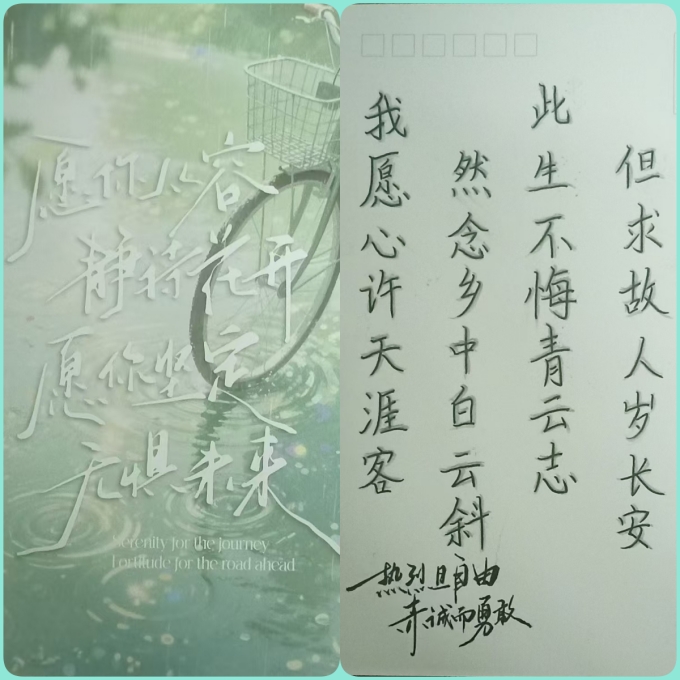 愿你从容
静待花开
愿你坚定
无惧未来
Serenity for the journey
Fortitude for the road ahead
我愿心许天涯客
然念乡中白云斜
此生不悔青云志
但求故人岁长安
热烈且自由
赤诚而勇敢